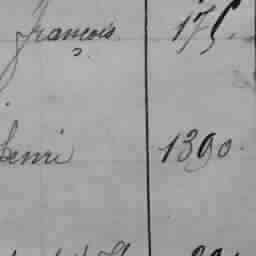 françois 175.
henri 1390.